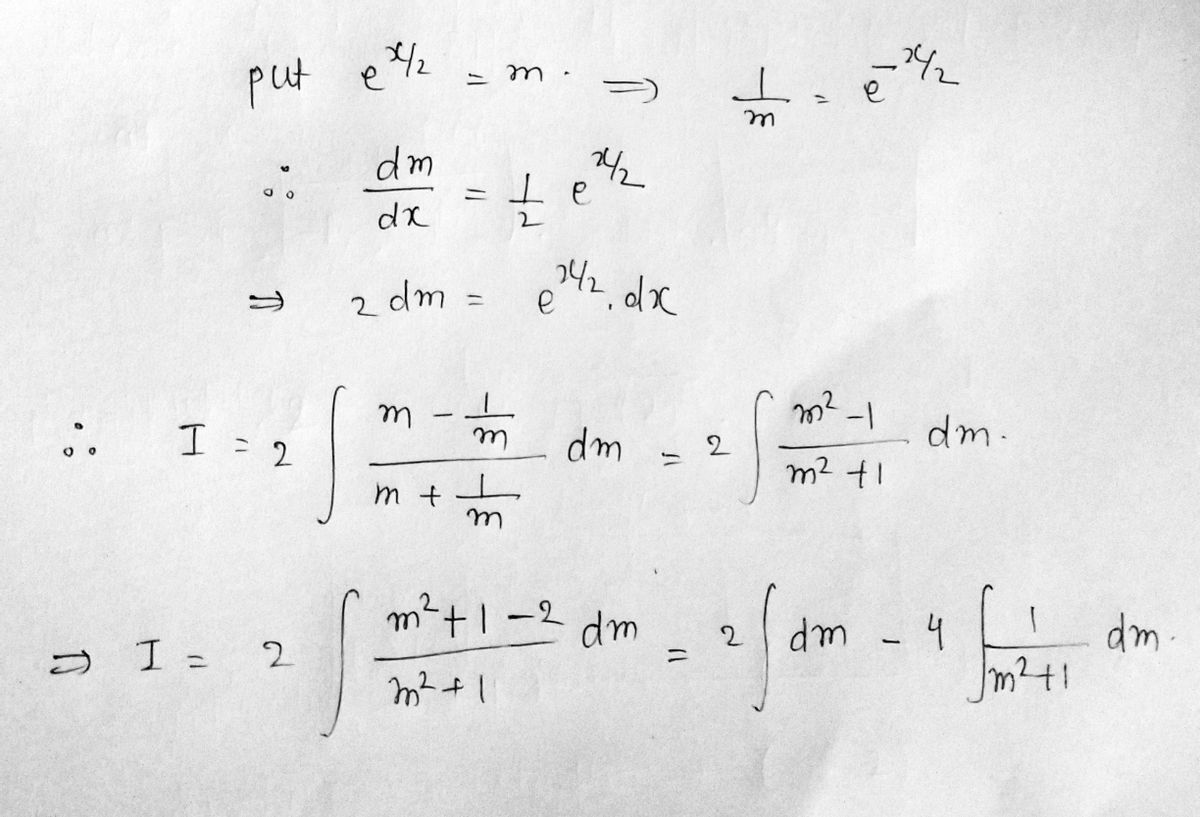 put e^{x/2} = m. ⇒ 1/m = e^{-x/2}
∴ dm/dx = 1/2 e^{x/2}
⇒ 2 dm = e^{x/2}. dx
∴ I = 2 ∫ (m - 1/m)/(m + 1/m) dm = 2 ∫ (m² -1)/(m² +1) dm.
⇒ I = 2 ∫ (m² +1 -2)/(m² +1) dm = 2 ∫ dm - 4 ∫ 1/(m² +1) dm.